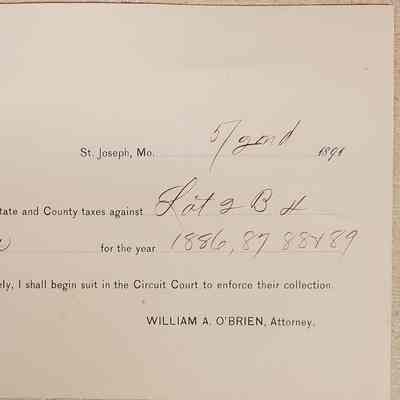 St. Joseph, Mo. 5/22nd 1891
tate and County taxes against Lot 2 B 4
for the year 1886, 87 88 & 89
ely, I shall begin suit in the Circuit Court to enforce their collection.
WILLIAM A. O'BRIEN, Attorney.